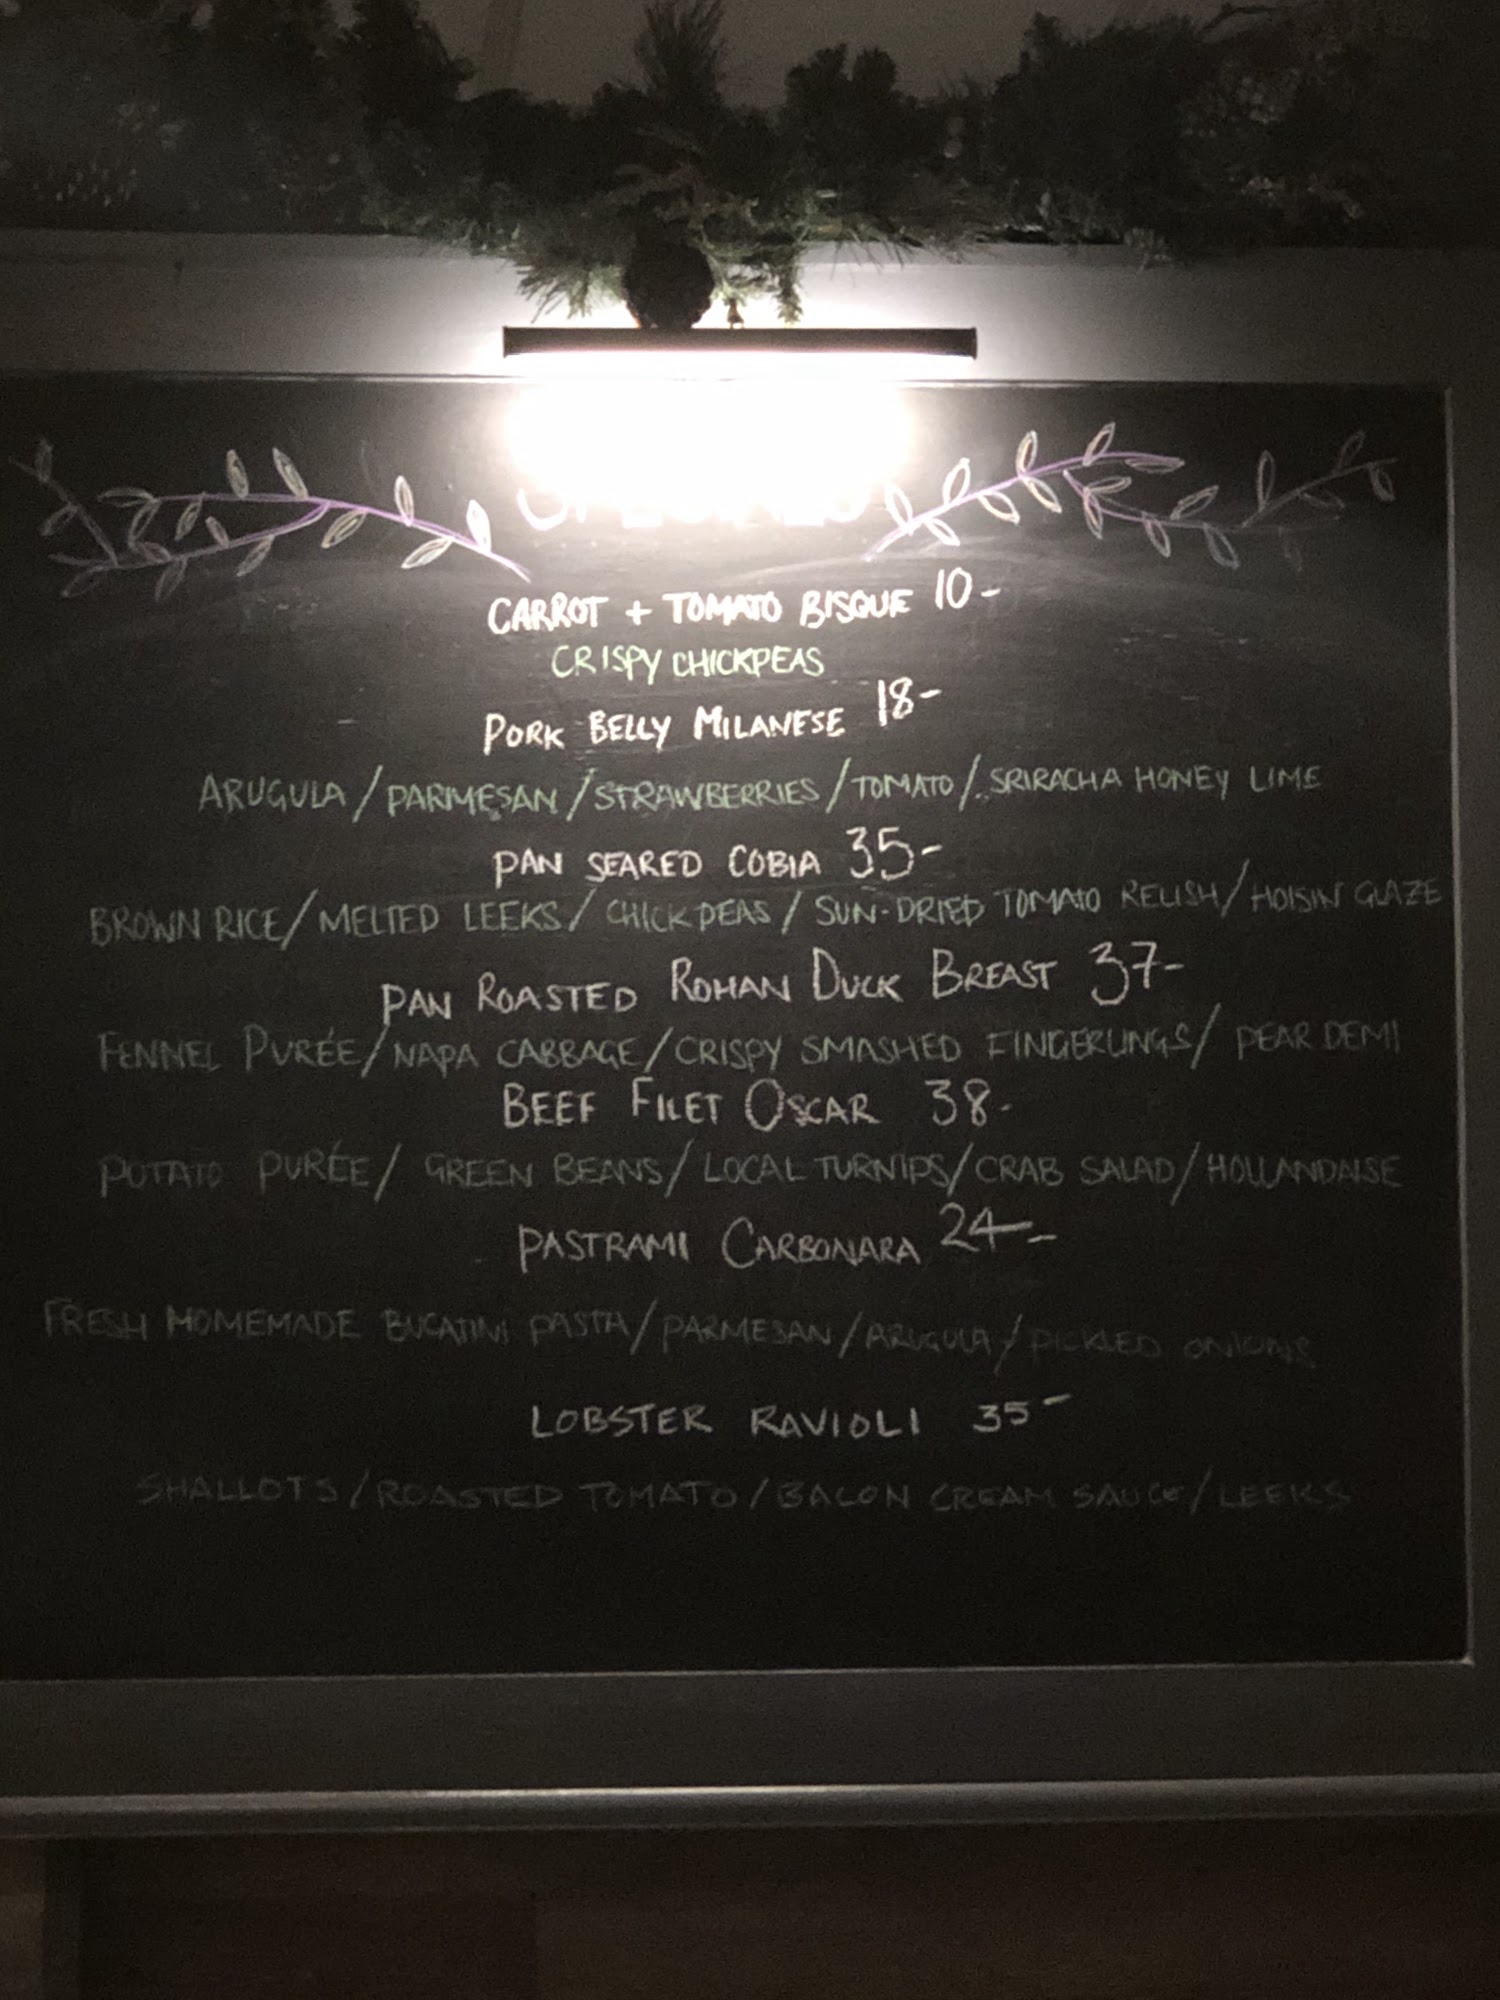 CARROT + TOMATO BISQUE 10-
CRISPY CHICKPEAS
PORK BELLY MILANESE 18-
ARUGULA/PARMESAN/STRAWBERRIES/TOMATO/SRIRACHA HONEY LIME
PAN SEARED COBIA 35-
BROWN RICE/MELTED LEEKS/CHICKPEAS/SUN-DRIED TOMATO RELISH/HOISIN GLAZE
PAN ROASTED ROHAN DUCK BREAST 37-
FENNEL PURÉE/NAPA CABBAGE/CRISPY SMASHED FINGERLINGS/PEAR DEMI
BEEF FILET OSCAR 38-
POTATO PURÉE/GREEN BEANS/LOCAL TURNIPS/CRAB SALAD/HOLLANDAISE
PASTRAMI CARBONARA 24-
FRESH HOMEMADE BUCATINI PASTA/PARMESAN/ARUGULA/PICKLED ONIONS
LOBSTER RAVIOLI 35-
SHALLOTS/ROASTED TOMATO/BACON CREAM SAUCE/LEEKS